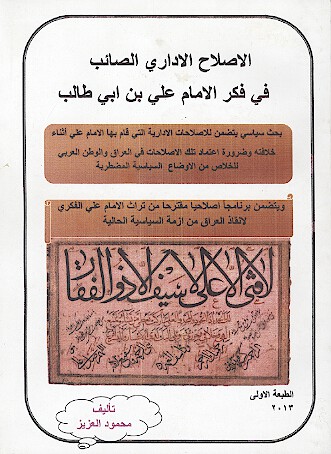 الاصلاح الاداري الصائب
في فكر الامام علي بن ابي طالب
بحث سياسي يتضمن للاصلاحات الادارية التي قام بها الامام علي أثناء
خلافته وضرورة اعتماد تلك الاصلاحات في العراق والوطن العربي
للخلاص من الاوضاع السياسية المضطربة
ويتضمن برنامجا اصلاحيا مقترحا من تراث الامام علي الفكري
لانقاذ العراق من ازمة السياسية الحالية
لا فتى الا علي لا سيف الا ذو الفقار
الطبعة الاولى
٢٠١٣
تأليف
محمود العزيز